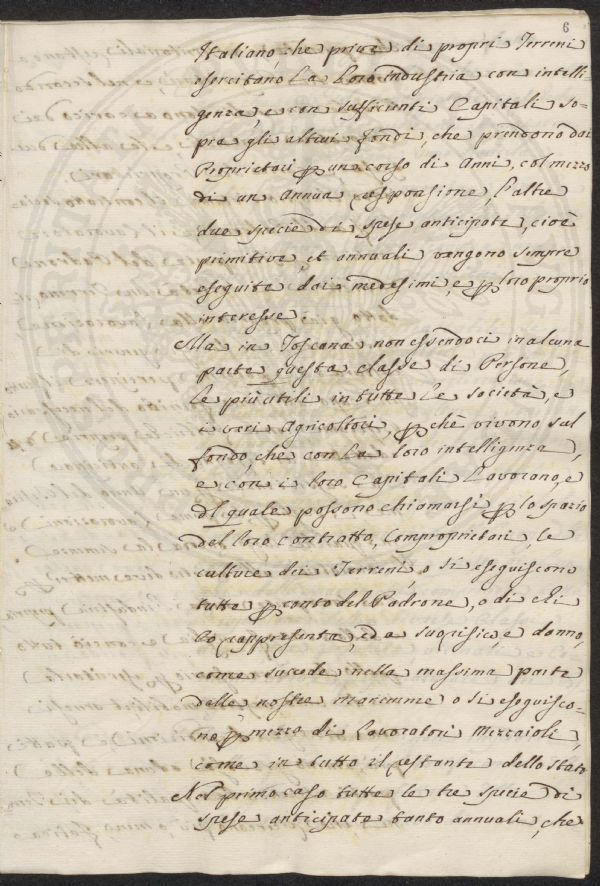 6
Italiano, che prive di propri Terreni
esercitano La Loro industria con intelli-
genza, e con sufficienti Capitali so-
pra gli altrui fondi, che prendono dai
Proprietari p un corso di Anni, col mezzo
di un Annua responsione, l'altre
due specie di spese anticipate, cioè
primitive, et annuali vengono sempre
eseguite dai medesimi, e p loro proprio
interesse.
Ma in Toscana non essendoci in alcuna
parte questa classe di Persone,
le più utili in tutte le società, e
i veri Agricoltori, p chè vivono sul
fondo, che con La loro intelligenza,
e con i loro Capitali Lavorano, e
del quale possono chiamarsi p lo spazio
del loro contratto, Comproprietari, le
culture dei Terreni, o si eseguiscono
tutte p conto del Padrone, o di chi
Lo rappresenta, ed a suo risico, e danno,
come succede nella massima parte
delle nostre maremme o si eseguisco-
no p mezzo di Lavoratori Mezzaioli,
come in tutto il restante dello Stato
Nel primo caso tutte le tre specie di
spese anticipate tanto annuali, che